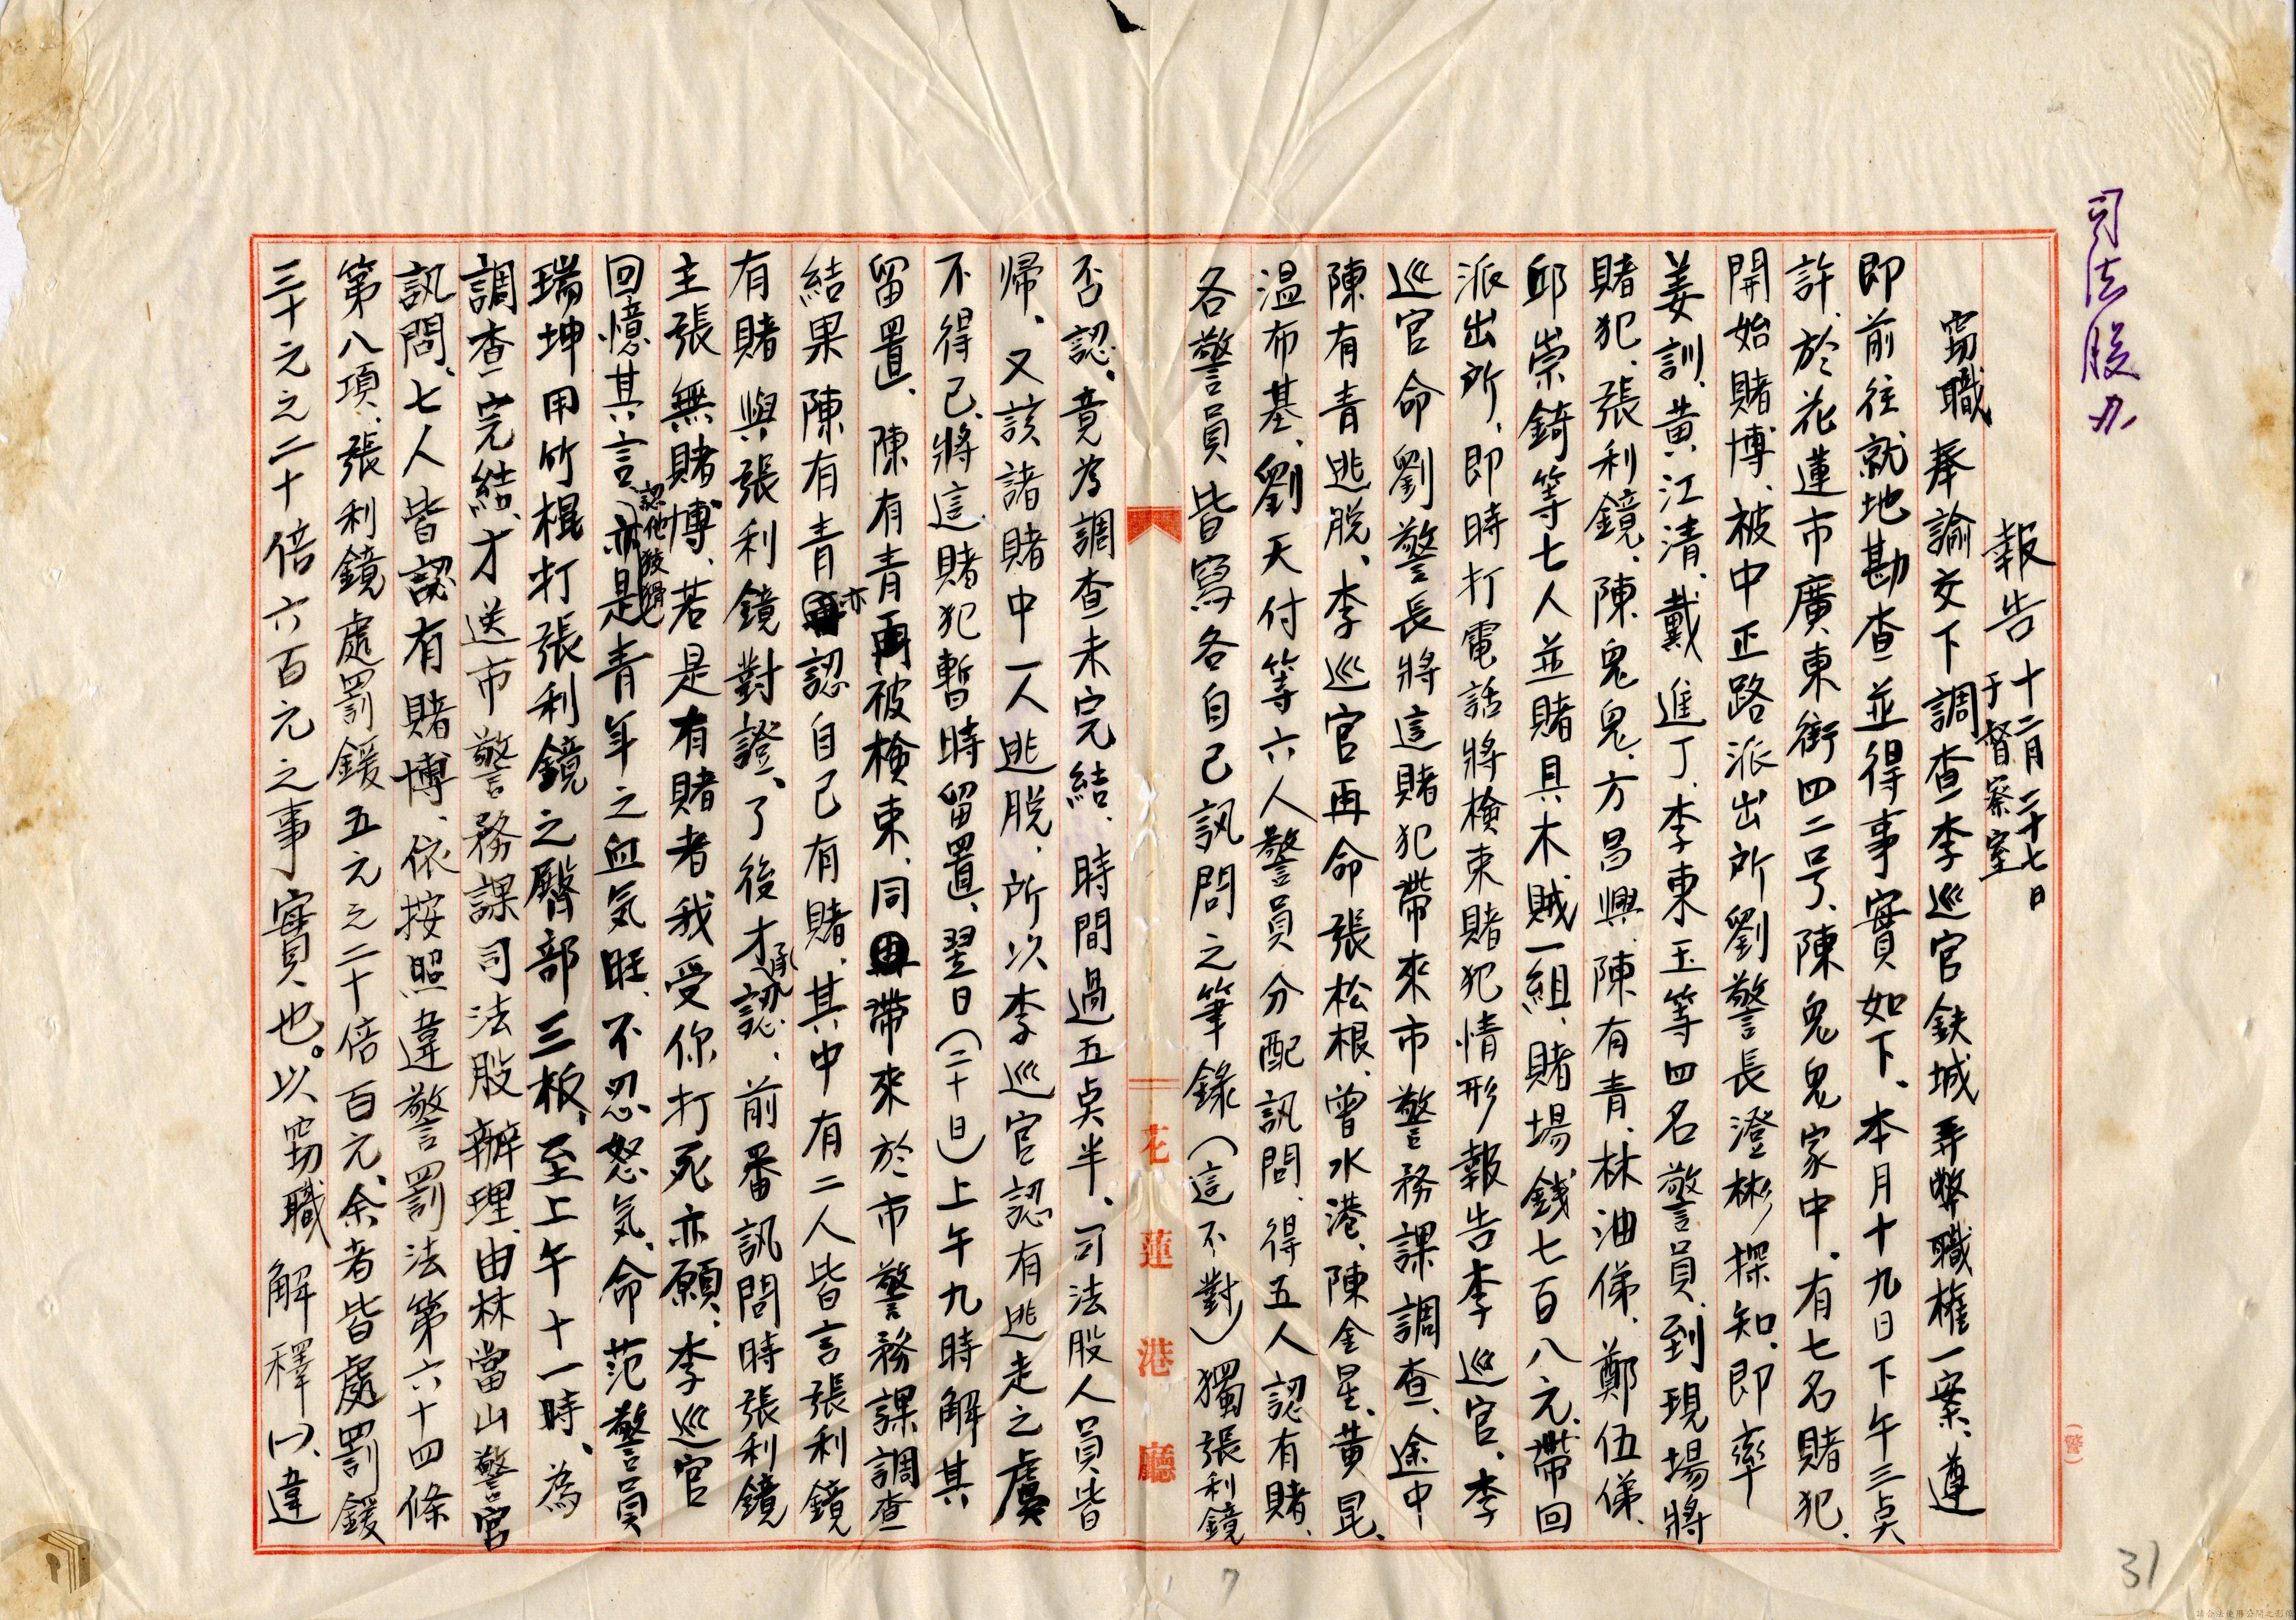 司法股办
報告 十二月二十七日
于督察室
竊職奉諭交下調查李巡官鉄城弄弊職權一案、遵
即前往就地勘查並得事實如下。本月十九日下午三点
許、於花蓮市廣東街四二号、陳鬼鬼家中、有七名賭犯、
開始賭博、被中正路派出所劉警長澄彬探知、即率
姜訓、黄江清、戴進丁、李東玉等四名警員、到現場將
賭犯、張利鏡、陳鬼鬼、方昌興、陳有青、林油俤、鄭伍俤、
邱崇錡等七人並賭具木賊一組、賭場錢七百八元、帶回
派出所、即時打電話將検束賭犯情形報告李巡官、李
巡官命劉警長將這賭犯帶來市警務課調查、途中
陳有青逃脱、李巡官再命張松根、曾水港、陳金星、黄昆、
温布基、劉天付等六人警員分配訊問、得五人認有賭、
各警員皆寫各自己訊問之筆錄（這不對）獨張利鏡
花蓮港廳
否認、竟為調查未完結、時間過五点半、司法股人員皆
帰、又該諸賭中一人逃脱、所以李巡官認有逃走之虞
不得已、將這賭犯暫時留置、翌日（二十日）上午九時解其
留置、陳有青再被検束、同帶來於市警務課調查
結果陳有青亦認自己有賭、其中有二人皆言張利鏡
有賭與張利鏡對證、了後才承認、前番訊問時張利鏡
主張無賭博、若是有賭者我受你打死亦願、李巡官
回憶其言認他狡猾亦是青年之血気旺、不忍怒気、命范警員
瑞坤用竹棍打張利鏡之臀部三板、至上午十一時、為
調查完結、才送市警務課司法股辦理、由林當山警官
訊問、七人皆認有賭博、依按照違警罰法第六十四條
第八項、張利鏡處罰鍰五元之二十倍百元、余者皆處罰鍰
三十元之二十倍六百元之事實也。以竊職解釋(一)、違
(警)
31
7